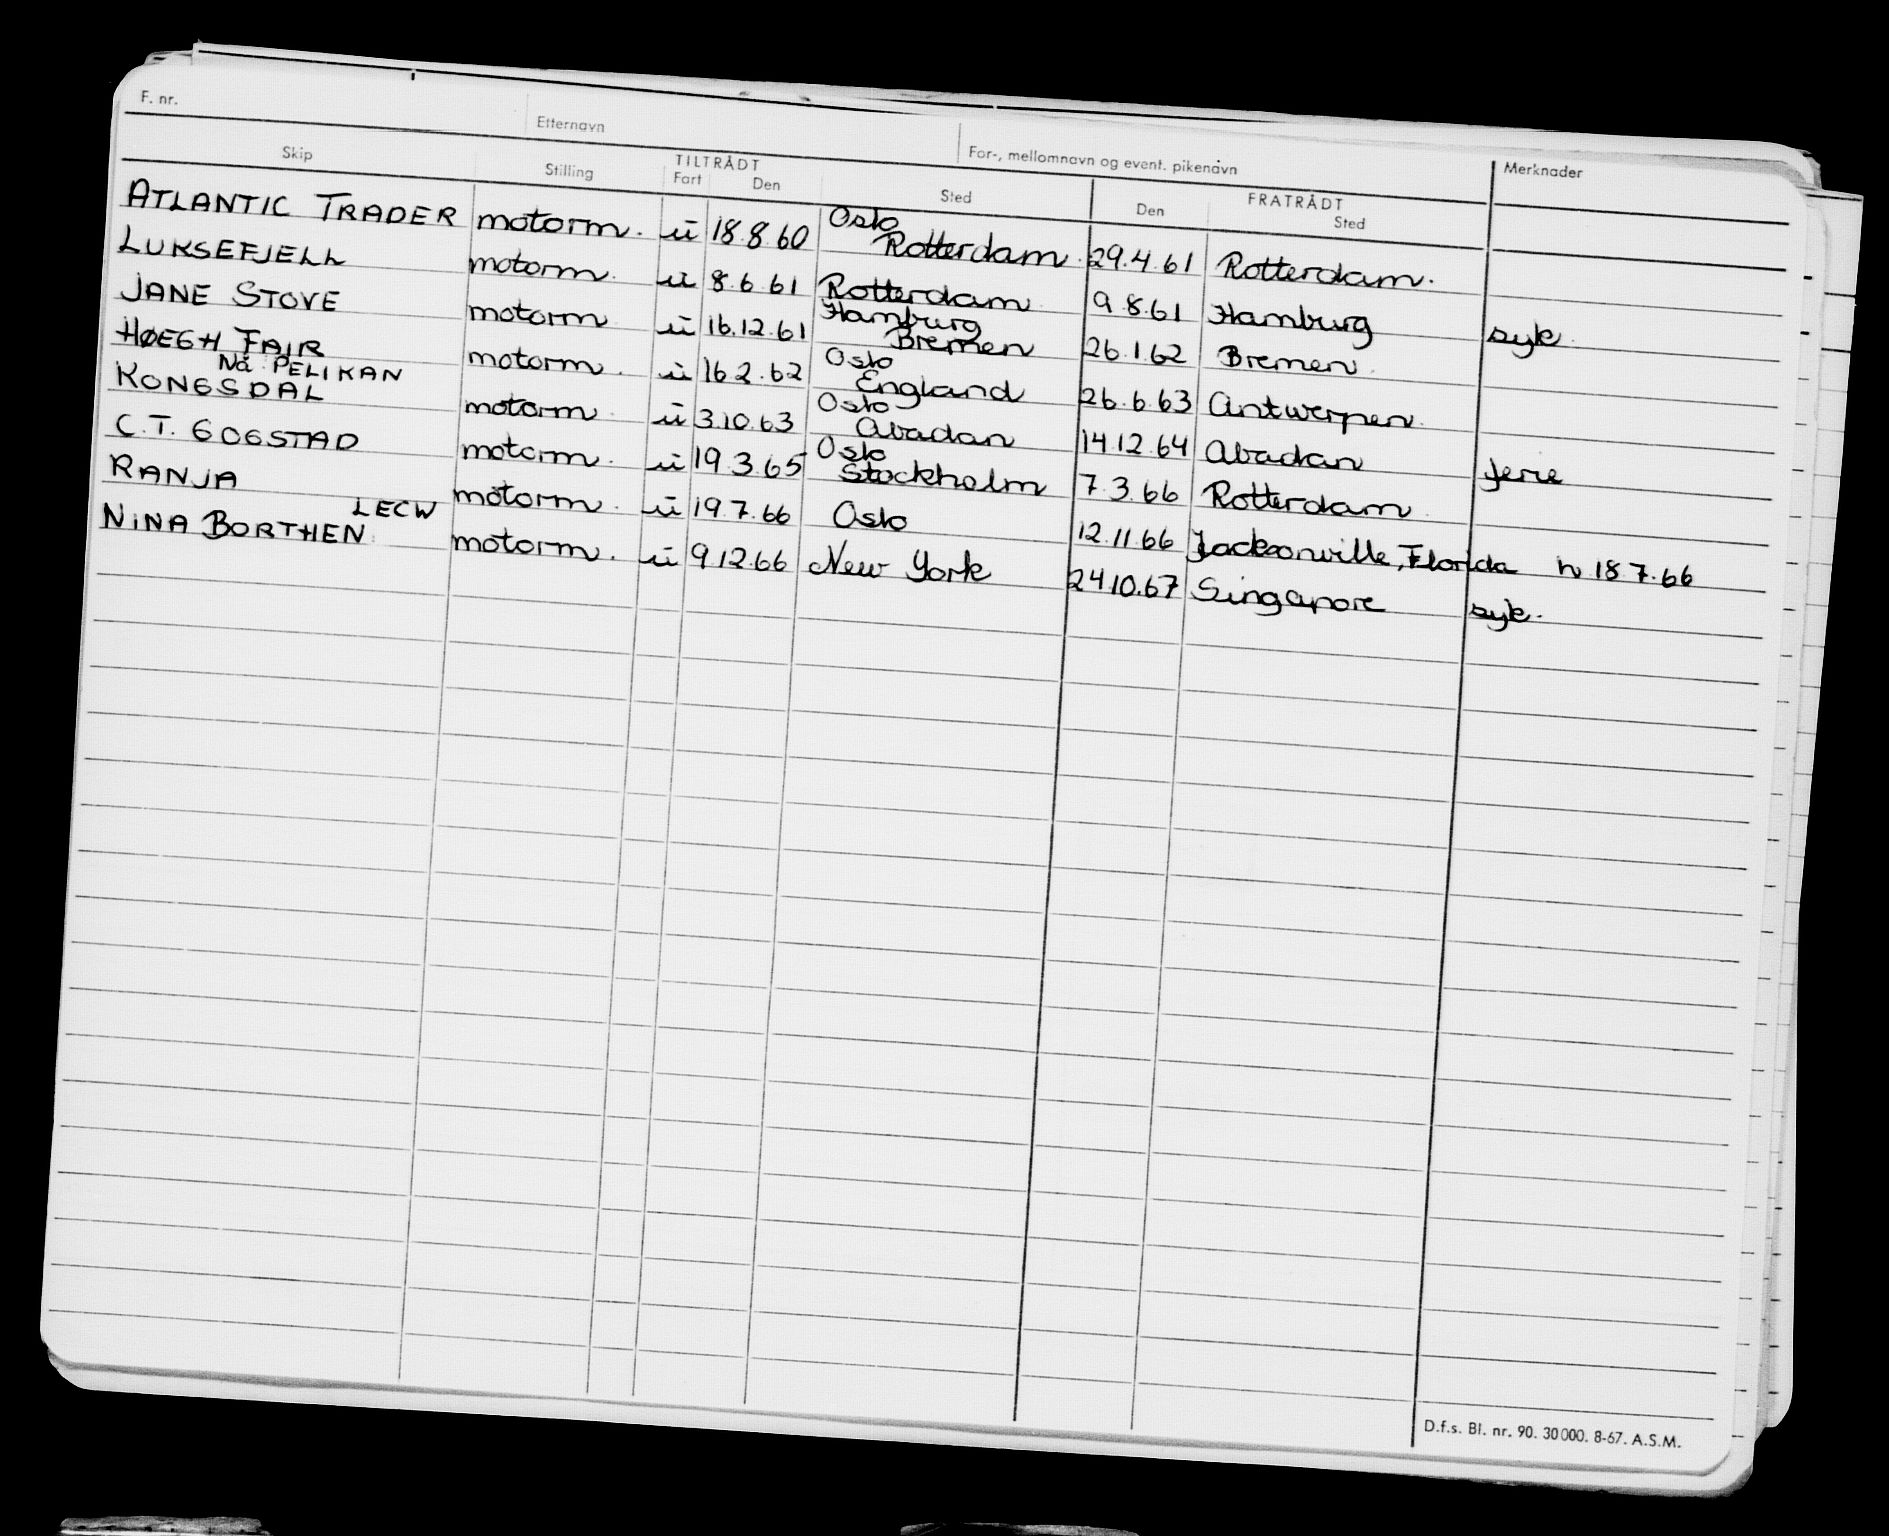 F. nr. Etternavn For-, mellomnavn og event. pikenavn Merknader
Skip Stilling TILTRÅDT FRATRÅDT
Fart Den Sted Den Sted
ATLANTIC TRADER motorm. u 18.8.60 Oslo Rotterdam. 29.4.61 Rotterdam.
LUKSEFJELL motorm. u 8.6.61 Rotterdam 9.8.61 Hamburg syk.
JANE STOVE motorm u 16.12.61 Hamburg Bremen 26.1.62 Bremen.
HØEGH FAIR motorm. u 16.2.62 Oslo England 26.6.63 Antwerpen.
Nå: PELIKAN
KONGSDAL motorm. u 3.10.63 Oslo Abadan 14.12.64 Abadan ferie
C.T. GOGSTAD motorm. u 19.3.65 Oslo Stockholm 7.3.66 Rotterdam.
RANJA motorm. u 19.7.66 Oslo 12.11.66 Jacksonville, Florida h 18.7.66
LECW
NINA BORTHEN motorm. u 9.12.66 New York 24.10.67 Singapore syk.
D.f.s. Bl. nr. 90. 30000. 8-67. A.S.M.